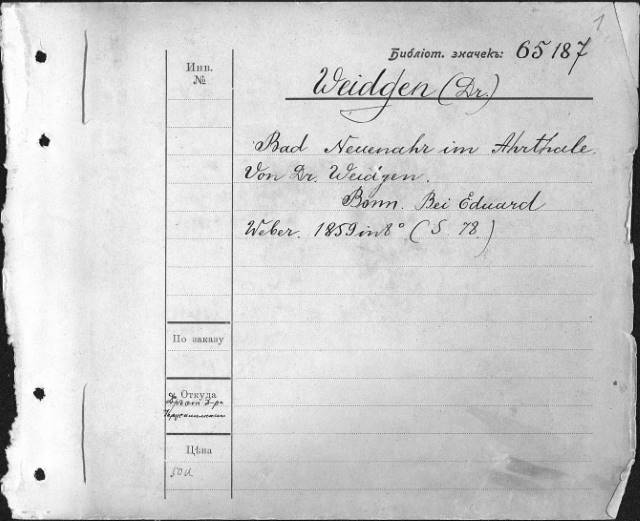 1
Библіот. значекъ: 65187
Инв.
№
Weidgen (Dr.)
Bad Neuenahr im Ahrthale.
Von Dr. Weidgen.
Bonn. Bei Eduard
Weber. 1859 in 8° (S. 78.)
По заказу
Откуда
Цѣна
50